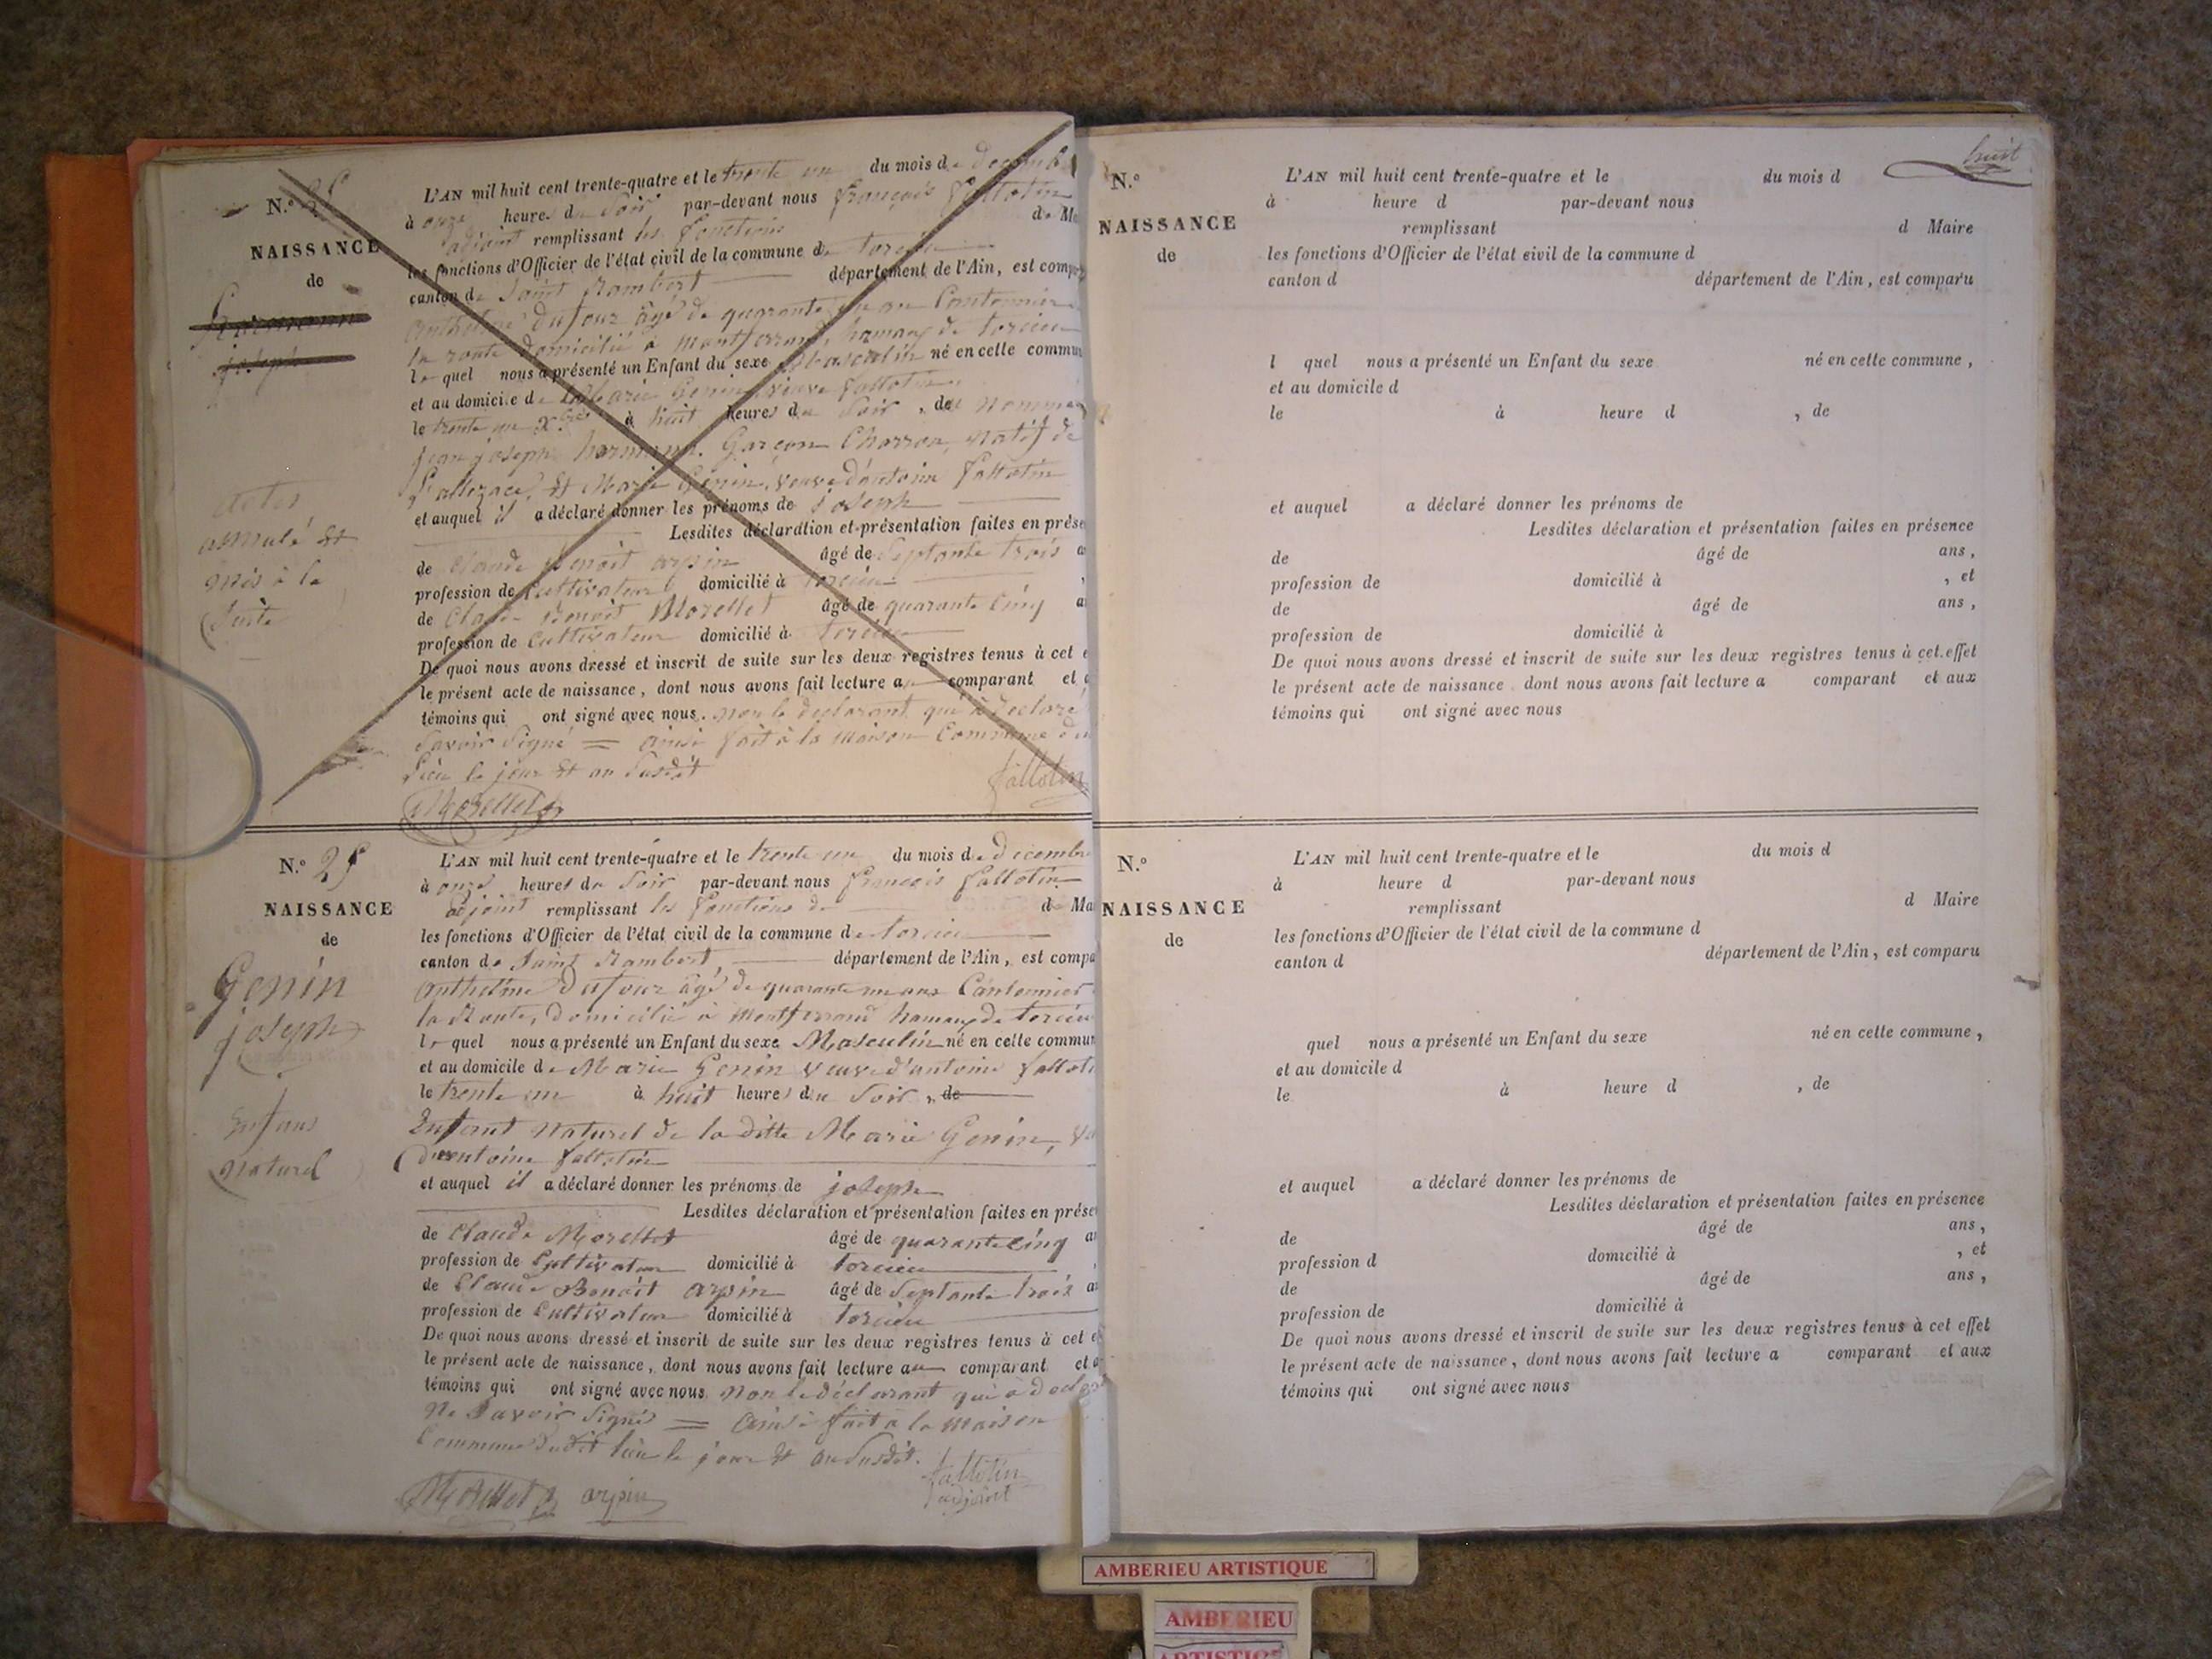 N.º 25
NAISSANCE
de
harmann
joseph
actes
annulé et
mis à la
suite
L'AN mil huit cent trente-quatre et le trente un du mois de décemb
à onze heures du soir par-devant nous françois fallotin
adjoint remplissant les fonctions de Ma
les fonctions d'Officier de l'état civil de la commune de torcieu
canton de Saint Rambert département de l'Ain, est comp
anthelme dufour âgé de quarante un an Cantonnier
la route domicilié à montferrand, hamau de torcieu
le quel nous a présenté un Enfant du sexe Mascalin né en cette commu
et au domicile de Marie Genin veuve fallotin
le trente un Xbre à huit heures du Soir, de nommé
jean joseph harmann. Garçon Charron, natif de
l'allezace, et Marie Genin, veuve d'antoine fallotin
et auquel il a déclaré donner les prénoms de joseph
Lesdites déclaration et présentation faites en prése
de Claude Benoit arpin âgé de Septante trois a
profession de Cultivateur domicilié à torcieu
de Claude Benoit Morellet âgé de quarante Cinq a
profession de Cultivateur domicilié à torcieu
De quoi nous avons dressé et inscrit de suite sur les deux registres tenus à cet e
le présent acte de naissance, dont nous avons fait lecture au comparant et a
témoins qui ont signé avec nous. non le déclarant qui à déclaré
Savoir Signé = ainsi fait à la maison Commune du
lieu le jour et an Susdit
Morellet fallotin
N.º 25
NAISSANCE
de
Genin
joseph
Enfans
naturel
L'AN mil huit cent trente-quatre et le trente un du mois de décembr
à onze heures du Soir par-devant nous françois fallotin
adjoint remplissant les fonctions de de Ma
les fonctions d'Officier de l'état civil de la commune de torcieu
canton de Saint Rambert département de l'Ain, est compa
anthelme dufour âgé de quarante un ans Cantonnier
la Route, domicilié à montferrand hamau de torcieu
le quel nous a présenté un Enfant du sexe Masculin né en cette commun
et au domicile de Marie Genin veuve d'antoine falloti
le trente un à huit heures du Soir, de
Enfant naturel de la ditte Marie Genin, ve
d'antoine fallotin
et auquel il a déclaré donner les prénoms de joseph
Lesdites déclaration et présentation faites en prése
de Claude Morellet âgé de quarante cinq a
profession de Cultivateur domicilié à torcieu
de Claude Benoit arpin âgé de Septante trois a
profession de Cultivateur domicilié à torcieu
De quoi nous avons dressé et inscrit de suite sur les deux registres tenus à cet e
le présent acte de naissance, dont nous avons fait lecture au comparant et a
témoins qui ont signé avec nous non le déclarant qui à déclar
ne Savoir Signé = ainsi fait à la maison
Commune dudit lieu le jour et an Susdit.
Morellet arpin fallotin
adjoint
huit
N.º
NAISSANCE
de
L'AN mil huit cent trente-quatre et le du mois d
à heure d par-devant nous
remplissant d Maire
les fonctions d'Officier de l'état civil de la commune d
canton d département de l'Ain, est comparu
l quel nous a présenté un Enfant du sexe né en cette commune,
et au domicile d
le à heure d , de
et auquel a déclaré donner les prénoms de
Lesdites déclaration et présentation faites en présence
de âgé de ans,
profession de domicilié à , et
de âgé de ans,
profession de domicilié à
De quoi nous avons dressé et inscrit de suite sur les deux registres tenus à cet effet
le présent acte de naissance, dont nous avons fait lecture a comparant et aux
témoins qui ont signé avec nous
N.º
NAISSANCE
de
L'AN mil huit cent trente-quatre et le du mois d
à heure d par-devant nous
remplissant d Maire
les fonctions d'Officier de l'état civil de la commune d
canton d département de l'Ain, est comparu
quel nous a présenté un Enfant du sexe né en cette commune,
et au domicile d
le à heure d , de
et auquel a déclaré donner les prénoms de
Lesdites déclaration et présentation faites en présence
de âgé de ans,
profession d domicilié à , et
de âgé de ans,
profession de domicilié à
De quoi nous avons dressé et inscrit de suite sur les deux registres tenus à cet effet
le présent acte de naissance, dont nous avons fait lecture a comparant et aux
témoins qui ont signé avec nous
AMBERIEU ARTISTIQUE
AMBERIEU
ARTISTIQ